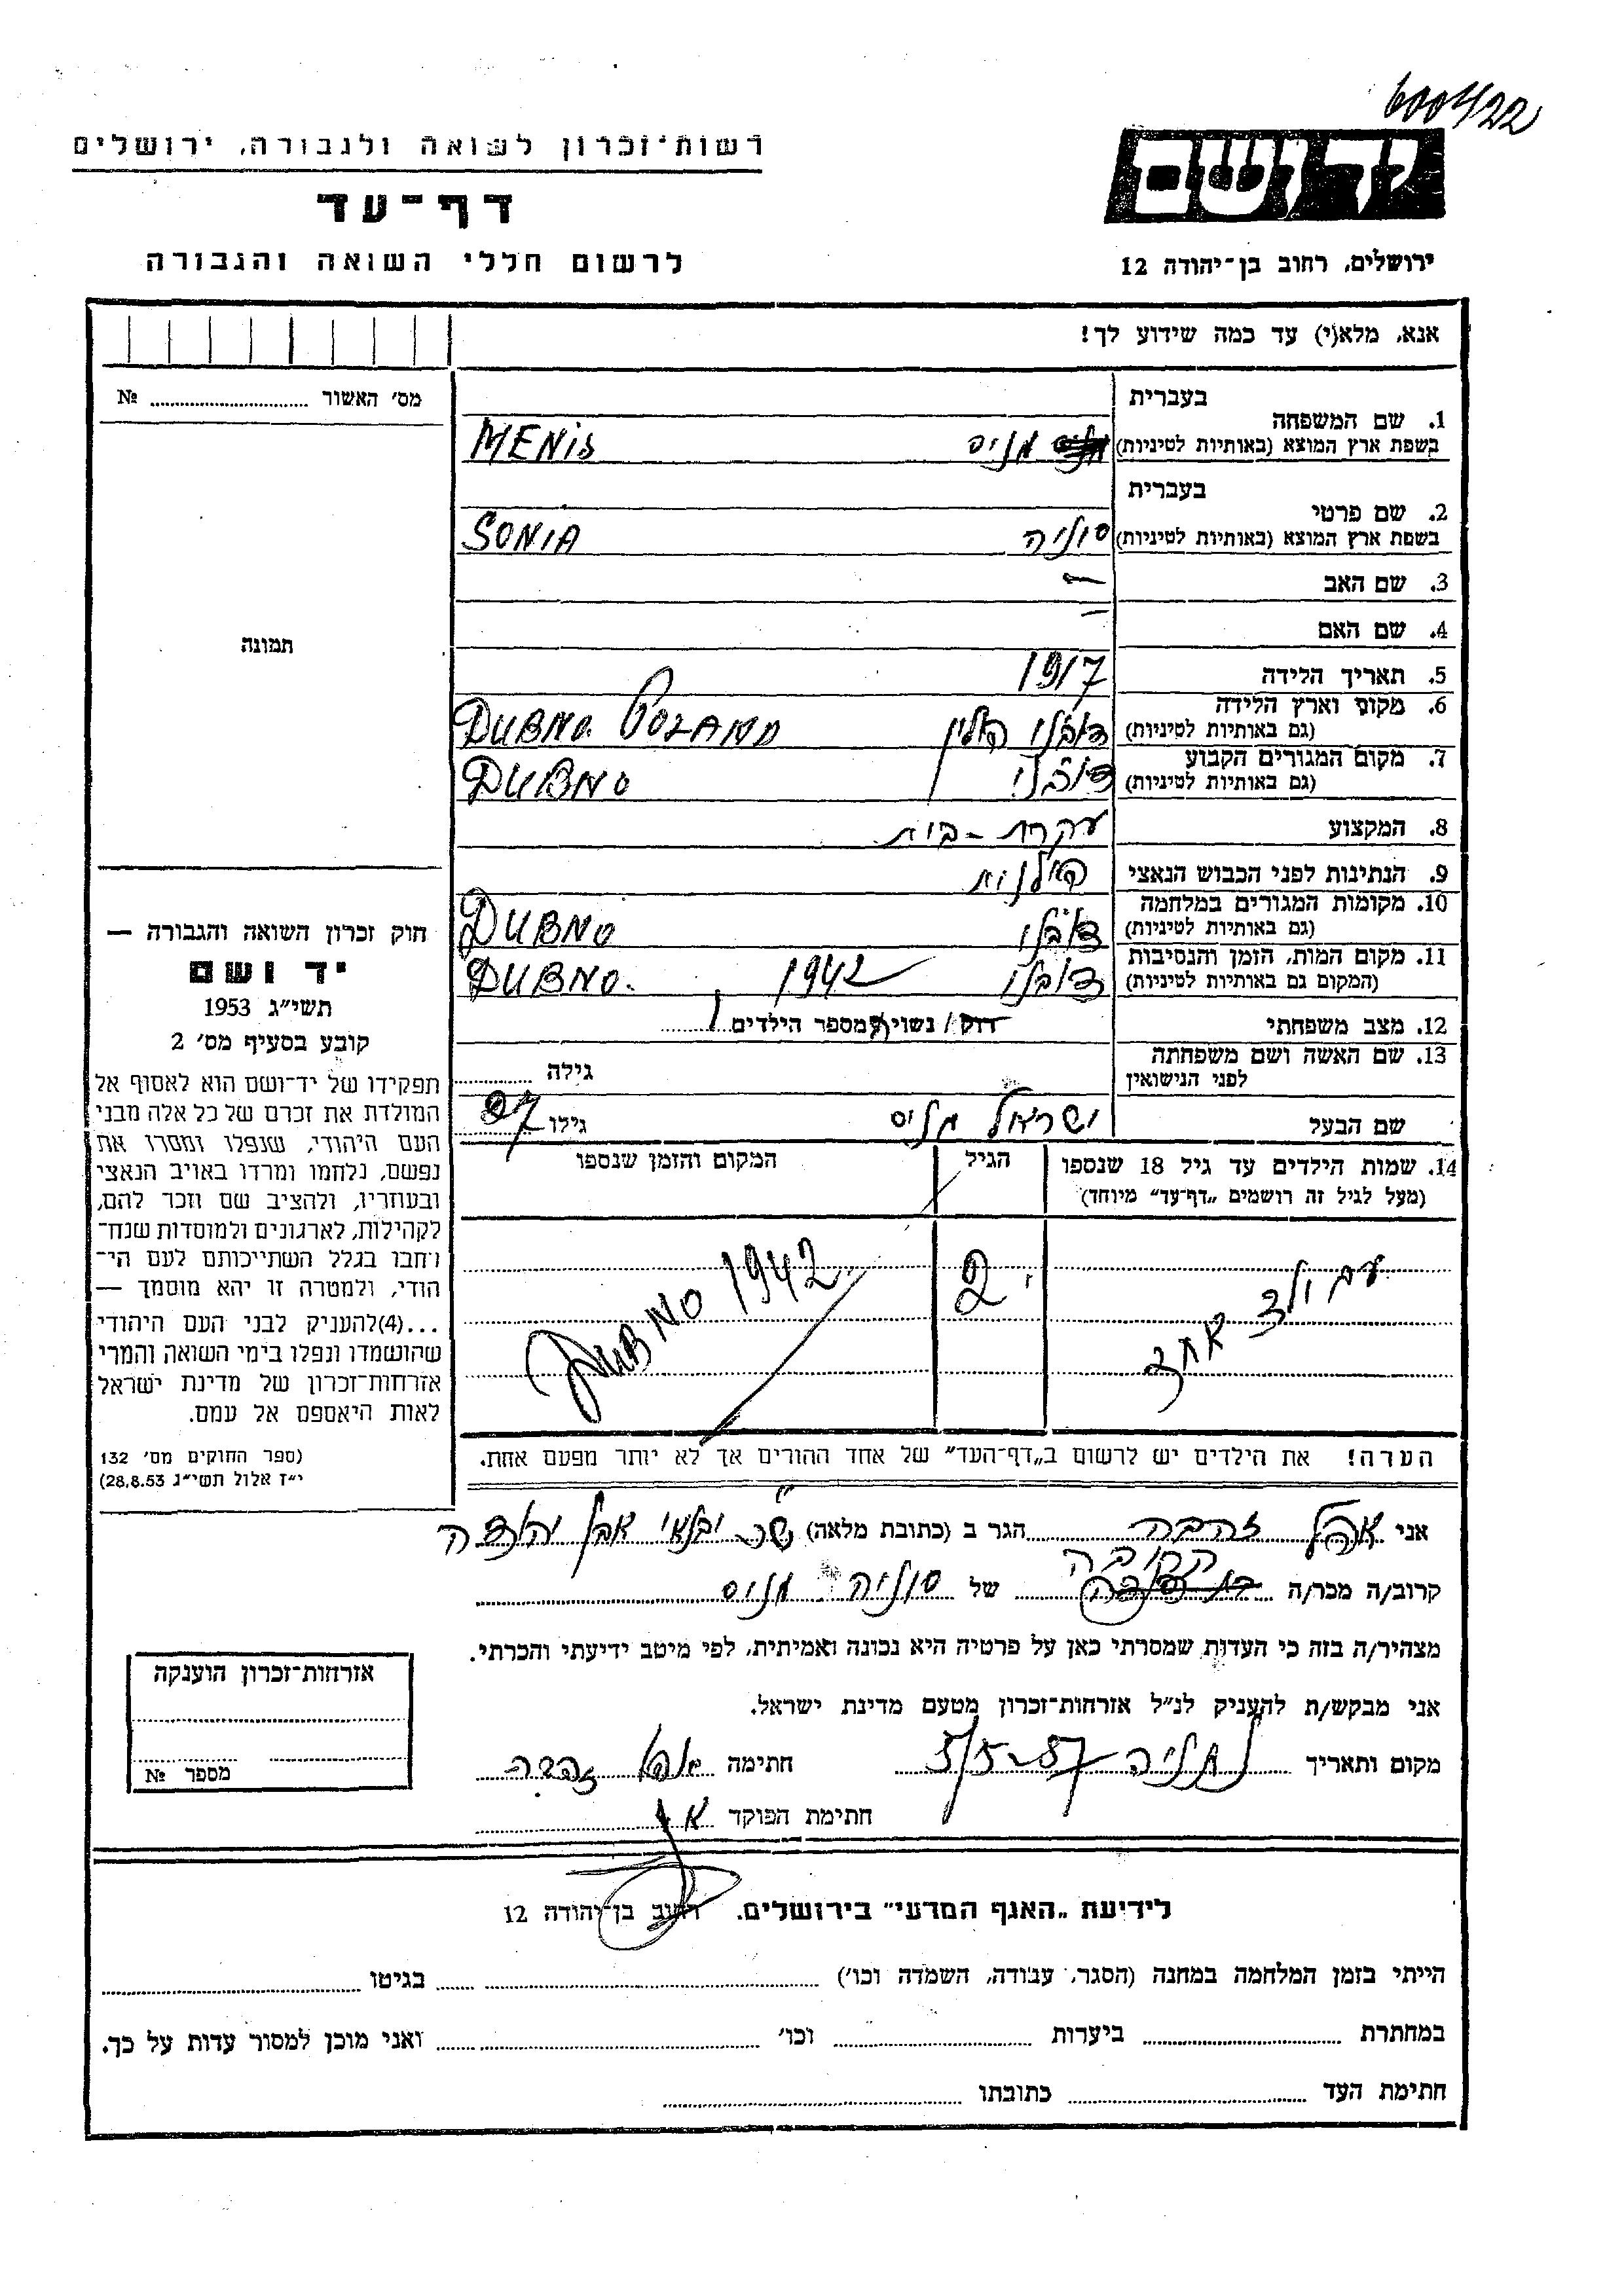 6004/22
רשות־זכרון לשואה ולגבורה, ירושלים
דף־עד
לרשום חללי השואה והגבורה
יד ושם
ירושלים, רחוב בן־יהודה 12
אנא, מלא(י) עד כמה שידוע לך!
מס׳ האשור № ..........
תמונה
חוק זכרון השואה והגבורה —
יד ושם
תשי״ג 1953
קובע בסעיף מס׳ 2
תפקידו של יד־ושם הוא לאסוף אל
המולדת את זכרם של כל אלה מבני
העם היהודי, שנפלו ומסרו את
נפשם, נלחמו ומרדו באויב הנאצי
ובעוזריו, ולהציב שם וזכר להם,
לקהילות, לארגונים ולמוסדות שנח־
רבו בגלל השתייכותם לעם הי־
הודי, ולמטרה זו יהא מוסמך —
...(4) להעניק לבני העם היהודי
שהושמדו ונפלו בימי השואה והמרי
אזרחות־זכרון של מדינת ישראל
לאות היאספם אל עמם.
(ספר החוקים מס׳ 132
י״ז אלול תשי״ג 28.8.53)
בעברית
1. שם המשפחה
בשפת ארץ המוצא (באותיות לטיניות) מניס MENIS
בעברית
2. שם פרטי
בשפת ארץ המוצא (באותיות לטיניות) סוניה SONIA
3. שם האב —
4. שם האם —
5. תאריך הלידה 1917
6. מקום וארץ הלידה
(גם באותיות לטיניות) דובנו פולין DUBNO. POLAND
7. מקום המגורים הקבוע
(גם באותיות לטיניות) דובנו DUBNO
8. המקצוע עקרת - בית
9. הנתינות לפני הכבוש הנאצי פולנית
10. מקומות המגורים במלחמה
(גם באותיות לטיניות) דובנו DUBNO
11. מקום המות, הזמן והנסיבות
(המקום גם באותיות לטיניות) דובנו 1942 DUBNO.
12. מצב משפחתי רוק/ נשוי/ מספר הילדים 1
13. שם האשה ושם משפחתה
לפני הנישואין גילה
שם הבעל ישראל מניס גילו 27
14. שמות הילדים עד גיל 18 שנספו הגיל המקום והזמן שנספו
(מעל לגיל זה רושמים „דף־עד״ מיוחד)
עם ילד אחד 2 DUBNO 1942
הערה! את הילדים יש לרשום ב„דף־העד״ של אחד ההורים אך לא יותר מפעם אחת.
אני זהבה הגר ב (כתובת מלאה) אבן יהודה
קרוב/ה מכר/ה קרובה של סוניה מניס
מצהיר/ה בזה כי העדות שמסרתי כאן על פרטיה היא נכונה ואמיתית, לפי מיטב ידיעתי והכרתי.
אני מבקש/ת להעניק לנ״ל אזרחות־זכרון מטעם מדינת ישראל.
מקום ותאריך נתניה 5/5-57 חתימה זהבה
חתימת הפוקד
אזרחות־זכרון הוענקה
מספר №
לידיעת „האגף המדעי״ בירושלים, רחוב בן־יהודה 12
הייתי בזמן המלחמה במחנה (הסגר, עבודה, השמדה וכו׳) .......... בגיטו ..........
במחתרת .......... ביערות .......... וכו׳ .......... ואני מוכן למסור עדות על כך.
חתימת העד .......... כתובתו ..........